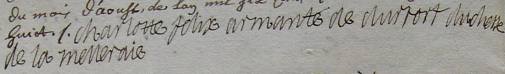 du mois d'aoust de lan mil six
huict. /. charlotte felix armante de durfort duchesse
de la mellerais